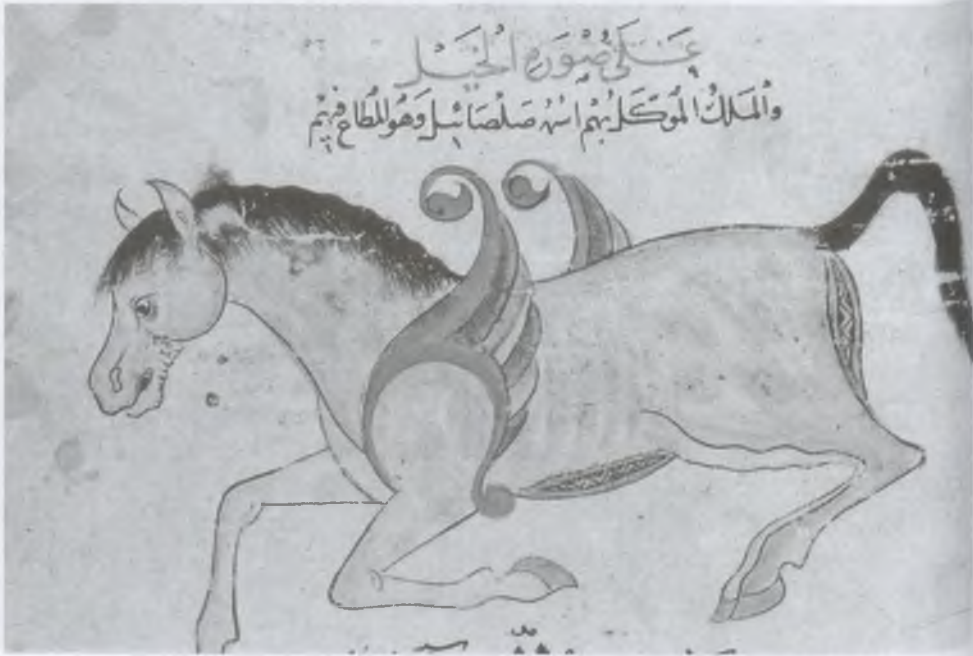 على صورة الخيل
والملك الموكل بهم اسمه صلصائيل وهو المطاع فيهم